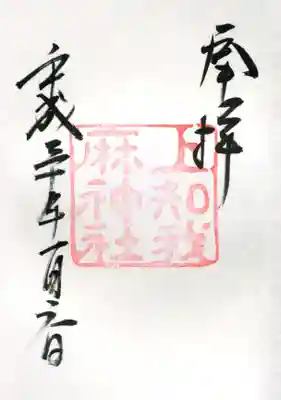 奉拝
上知我
麻神社
平成三十年一月六日